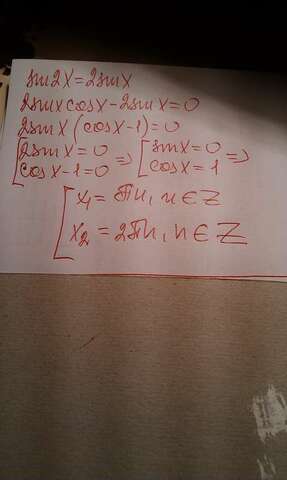 sin2x=2sinx
2sinxcosx-2sinx=0
2sinx(cosx-1)=0
[2sinx=0 => [sinx=0 =>
cosx-1=0 cosx=1
[x₁=πn, n∈Z
x₂=2πn, n∈Z